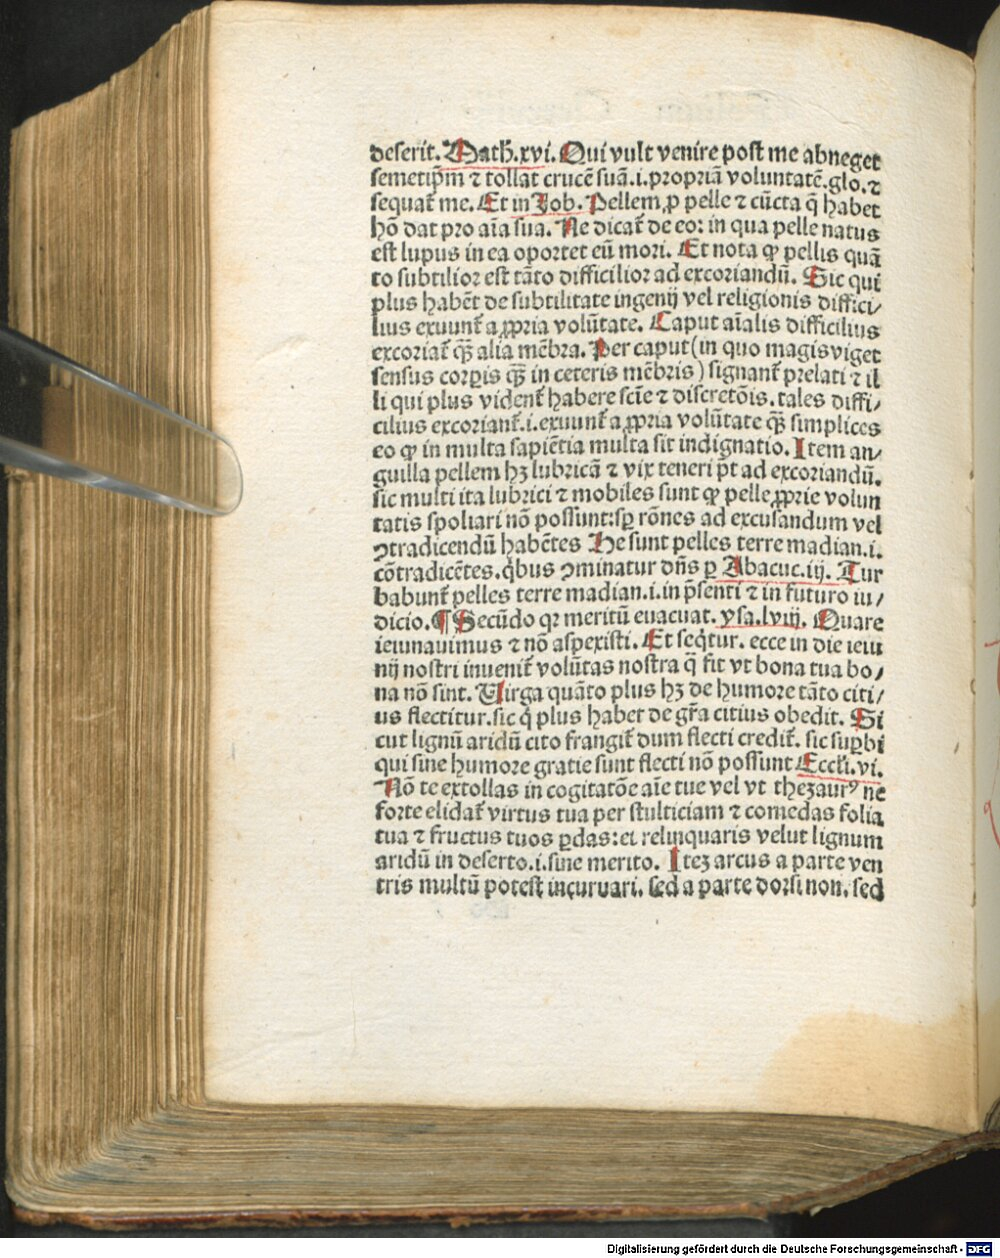 deserit. Math̄.xvi. Qui vult venire post me abneget
semetip̄m ⁊ tollat crucē suā.i.propriā voluntatē.glo.⁊
sequat̄ me. Et in Job. Pellem ꝓ pelle ⁊ cūcta q̄ habet
hō dat pro aīa sua. Ne dicat̄ de eo: in qua pelle natus
est lupus in ea oportet eū mori. Et nota ꝙ pellis quā
to subtilior est tāto difficilior ad excoriandū. Sic qui
plus habēt de subtilitate ingenij vel religionis diffici/
lius exuunt̄ a ꝓpria volūtate. Caput aīalis difficilius
excoriat̄ qȝ̄ alia mēbra. Per caput (in quo magis viget
sensus corꝑis qȝ̄ in ceteris mēbris) signant̄ prelati ⁊ il
li qui plus vident̄ habere scīe ⁊ discretōis. tales diffi/
cilius excoriant̄.i.exuunt̄ a ꝓpria volūtate qȝ̄ simplices
eo ꝙ in multa sapiētia multa sit indignatio. Item an/
guilla pellem hȝ lubricā ⁊ vix teneri p̄t ad excoriandū.
sic multi ita lubrici ⁊ mobiles sunt ꝙ pelle ꝓprie volun
tatis spoliari nō possunt: sꝑ rōnes ad excusandum vel
ꝯtradicendū habētes He sunt pelles terre madian.i.
cōtradicētes. qͥbus ꝯminatur dn̄s ꝑ Abacuc.iij. Tur
babunt̄ pelles terre madian.i.in p̄senti ⁊ in futuro iu/
dicio. ¶ Secūdo qꝛ meritū euacuat. ysa.lviij. Quare
ieiunauimus ⁊ nō aspexisti. Et seqͥtur. ecce in die ieiu
nij nostri inuenit̄ volūtas nostra q̄ fit vt bona tua bo/
na nō sint. Uirga quāto plus hȝ de humore tāto citi/
us flectitur. sic qͥ plus habet de gr̄a citius obedit. Si
cut lignū aridū cito frangit̄ dum flecti credit̄. sic suꝑbi
qui sine humore gratie sunt flecti nō possunt Eccłi.vi.
Nō te extollas in cogitatōe aīe tue vel vt thezaurꝰ ne
forte elidat̄ virtus tua per stulticiam ⁊ comedas folia
tua ⁊ fructus tuos ꝑdas: et relinquaris velut lignum
aridū in deserto.i.sine merito. Iteȝ arcus a parte ven
tris multū potest incuruari. sed a parte dorsi non. sed
Digitalisierung gefördert durch die Deutsche Forschungsgemeinschaft - DFG